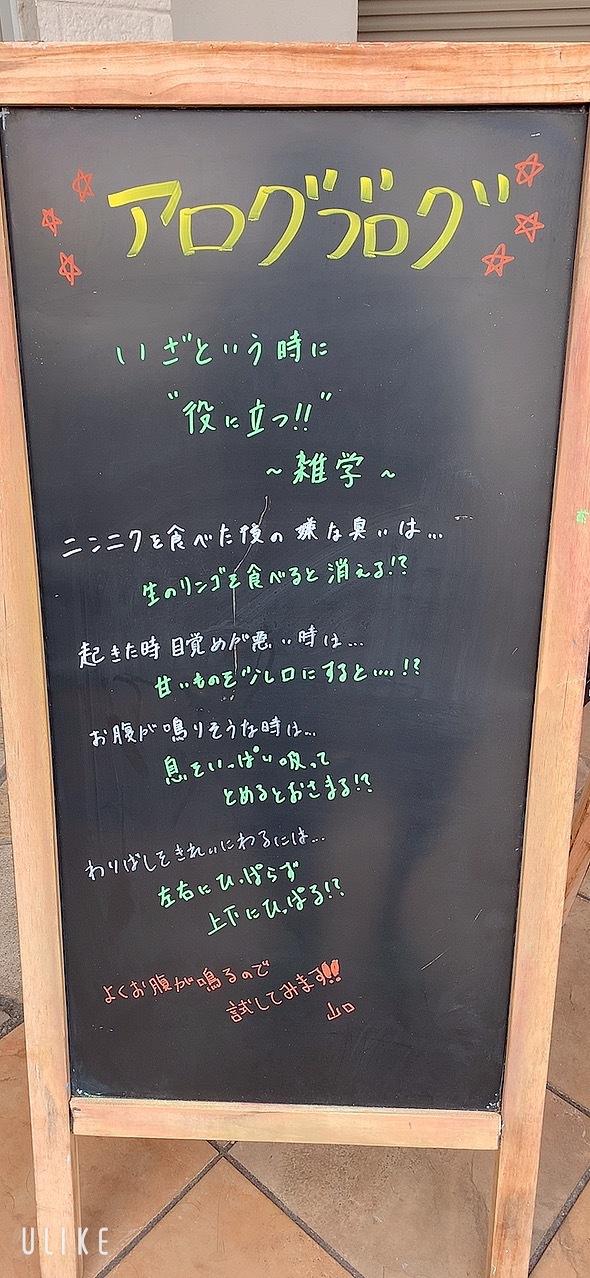 アログブログ
いざという時に
"役に立つ!!"
~雑学~
ニンニクを食べた後の嫌な臭いは...
生のリンゴを食べると消える!?
起きた時目覚めが悪い時は...
甘いものを少し口にすると....!?
お腹が鳴りそうな時は...
息をいっぱい吸って
とめるとおさまる!?
わりばしをきれいにわるには...
左右にひっぱらず
上下にひっぱる!?
よくお腹が鳴るので
試してみます!!
山口
ULIKE